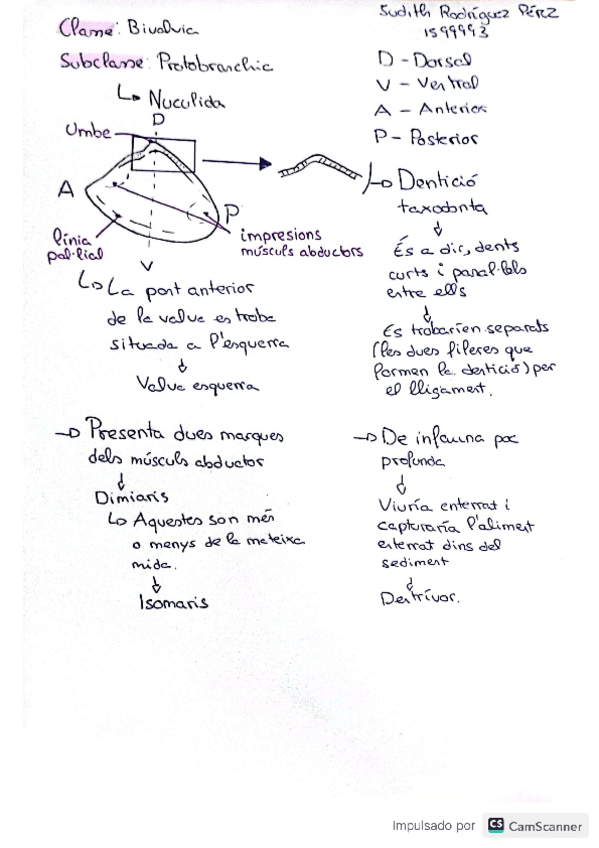 Judith Rodríguez Pérez
1599993
Classe: Bivalvia
Subclasse: Protobranchia
↳ Nuculida
D - Dorsal
V - Ventral
A - Anterior
P - Posterior
D
Umbe
A
P
V
línia
pal·lial
impresions
músculs abductors
↳ Dentició
taxodonta
↓
És a dir, dents
curts i paral·lels
entre ells
↓
Es trobarien separats
(les dues fileres que
formen la dentició) per
el lligament.
↳ La part anterior
de la valva es troba
situada a l'esquerra
↓
Valva esquerra
→ Presenta dues marques
dels músculs abductor
↓
Dimiaris
↳ Aquestes son més
o menys de la mateixa
mida.
↓
Isomaris
→ De infauna poc
profunda
↓
Viuría enterrat i
capturaría l'aliment
enterrat dins del
sediment
↓
Detrívor.
Impulsado por CS CamScanner